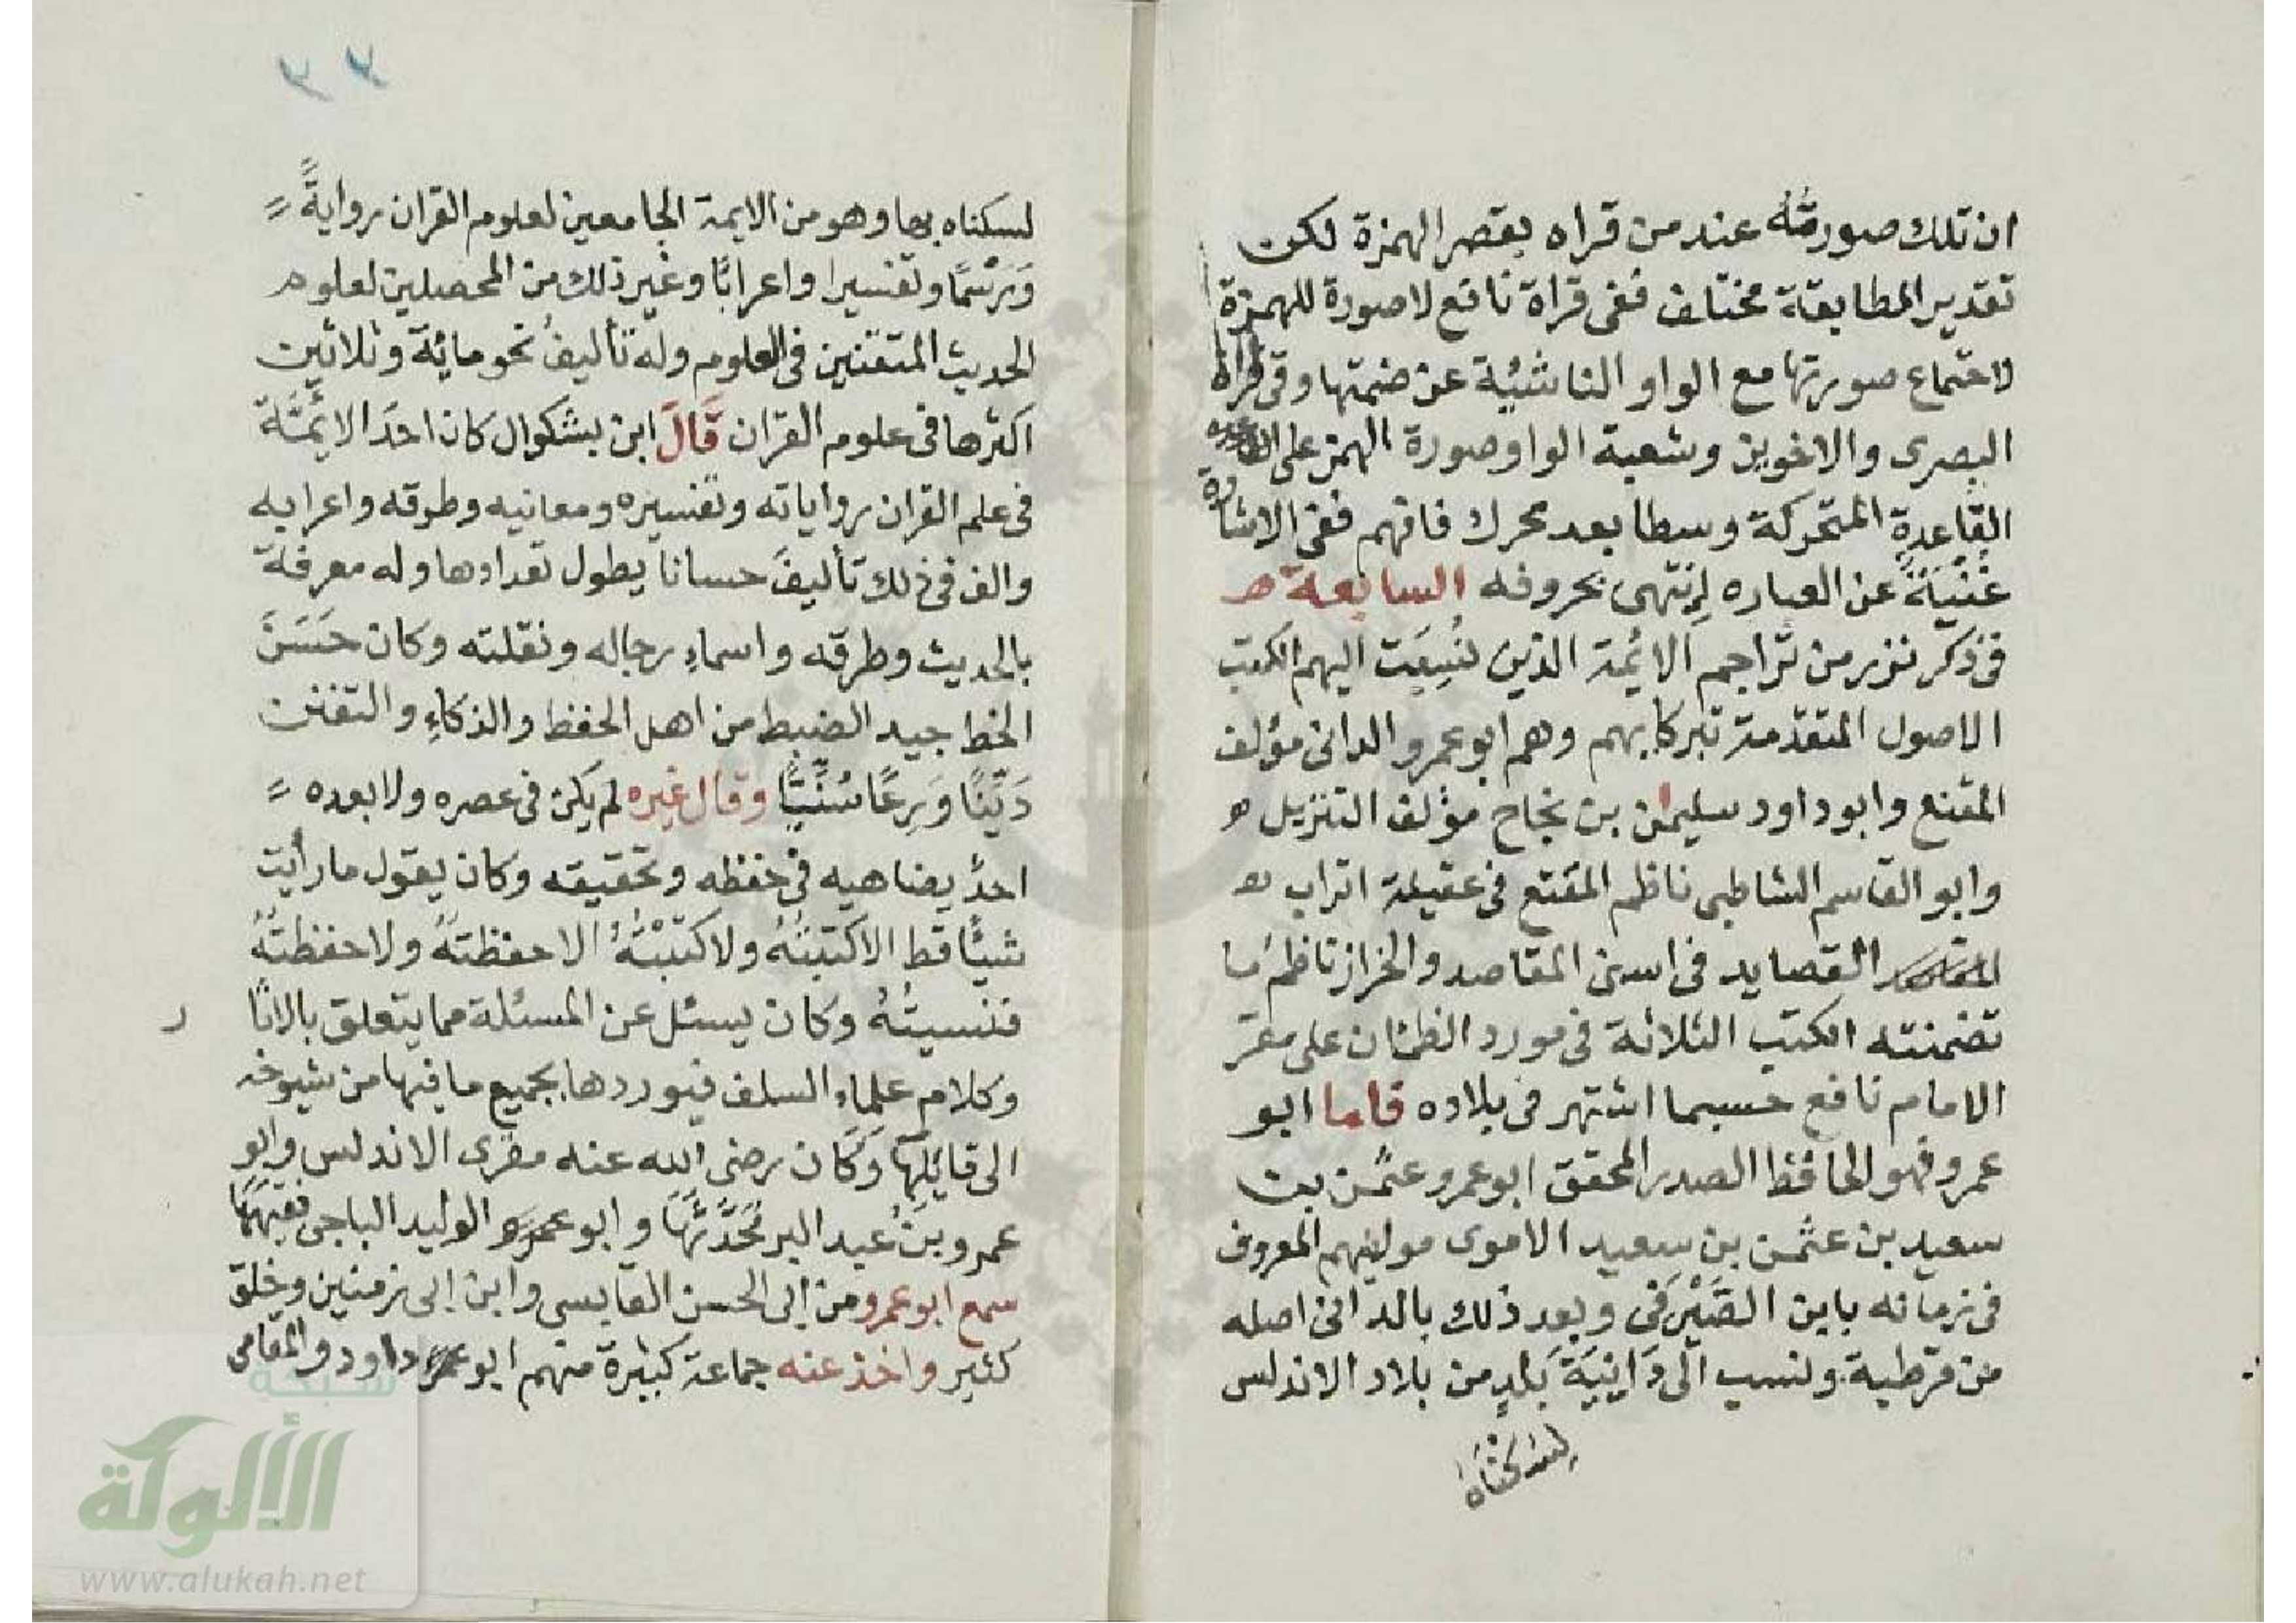 ان تلك صورته عند من قراه بقصر الهمزة لكن
تقدير المطابقة مختلف ففى قراة نافع لا صورة للهمزة
لاجتماع صورتها مع الواو الناشئة عن ضمتها وفى قراة
البصرى والاخوين وشعبة الواو صورة الهمز على
القاعدة المتحركة وسطا بعد محرك فافهم ففى الاشارة
غُنْيَةً عن العباره انتهى بحروفه السابعة
فى ذكر نزر من تراجم الائمة الذين نُسِبَت اليهم الكتب
الاصول المتقدمة تبركا بهم وهم ابو عمرو الدانى مؤلف
المقنع وابو داود سليمن بن نجاح مؤلف التنزيل
وابو القاسم الشاطبى ناظم المقنع فى عقيلة اتراب
القصايد فى اسنى المقاصد والخراز ناظم ما
تضمنته الكتب الثلاثة فى مورد الظمئان على مقر
الامام نافع حسبما اشتهر فى بلاده فاما ابو
عمرو فهو الحافظ الصدر المحقق ابو عمرو عثمن بن
سعيد بن عثمن بن سعيد الاموى موليهم المعروف
فى زمانه بابن الصَّيْرَفى وبعد ذلك بالدانى اصله
من قرطبة ونسب الى دَانِيَةَ بَلدٍ من بلاد الاندلس
لسكناه
٣٣
لسكناه بها وهو من الايمة الجامعين لعلوم القران روايةً
وَرَسْمًا وتفسيرا واعرابًا وغير ذلك من المحصلين لعلوم
الحديث المتفننين فى العلوم وله تأليفُ نحو مائة وثلاثين
اكثرها فى علوم القران قَالَ ابن بشكوال كان احدَ الائمَّة
فى علم القران رواياته وتفسيره ومعانيه وطرقه واعرابه
والف فى ذلك تأليفً حسانا يطول تعدادها وله معرفة
بالحديث وطرقه واسماءِ رجاله ونقلته وكان حَسَنَ
الخط جيد الضبط من اهل الحفظ والذكاءِ والتفنن
دَيِّنًا وَرِعًا سُنِّيًّا وقال غيره لم يكن فى عصره ولا بعده
احدٌ يضاهيه فى حفظه وتحقيقه وكان يقول ما رأيت
شيئًا قط الا كتبتُهُ ولا كتبْتُهُ الا حفظتهُ ولا حفظتهُ
فنسيتُهُ وكان يسئل عن المسئلة مما يتعلق بالاثا
ر
وكلام علماءِ السلف فيوردها بجميع ما فيها من شيوخه
الى قايلِها وَكَان رضى الله عنه مقرى الاندلس وابو
عمرو بنُ عبد البر مُحَدِّثُهَا وابو الوليد الباجى فقيهَهَا
سمع ابو عمرو من ابى الحسن القابسى وابن ابى زمنين وخلق
كثير واخذ عنه جماعة كبيرة منهم ابو داود والمقامى
شبكة
الألوكة
www.alukah.net